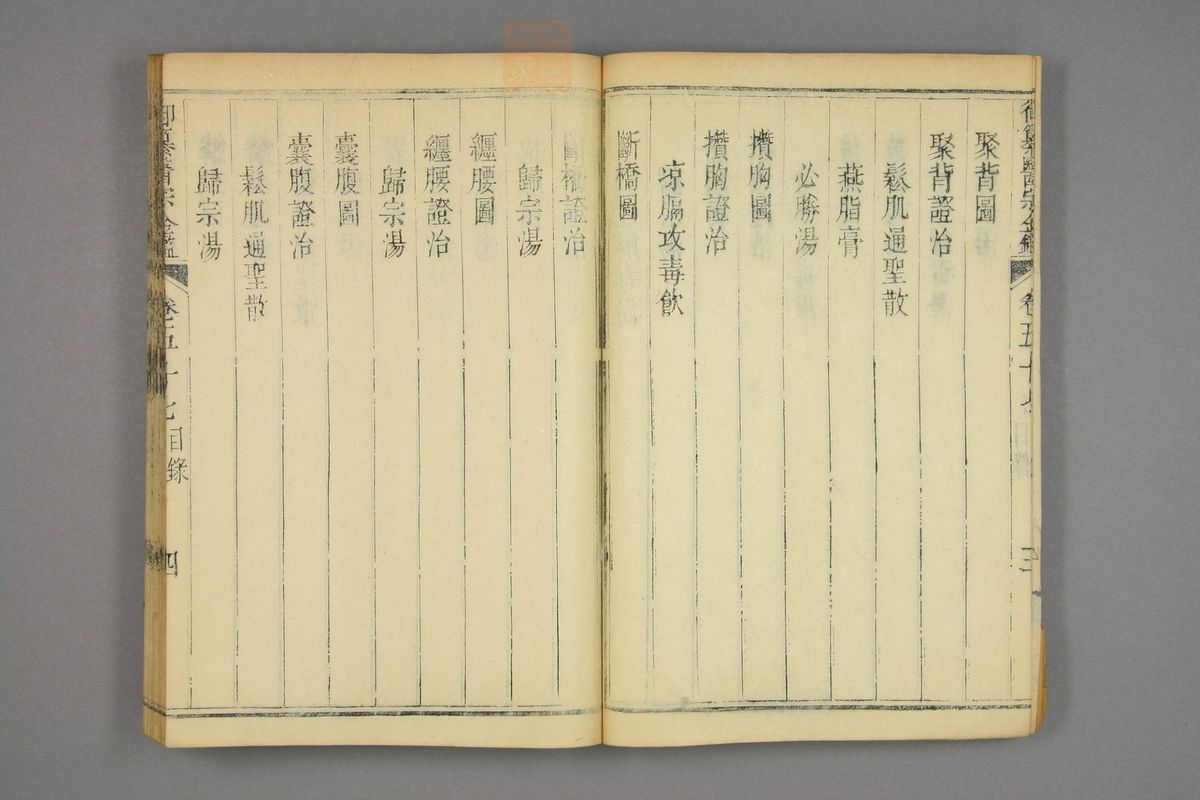 聚背圖
聚背證治
鬆肌通聖散
燕脂膏
必勝湯
攢胸圖
攢胸證治
涼膈攻毒飲
斷橋圖
斷橋證治
歸宗湯
纏腰圖
纏腰證治
歸宗湯
囊腹圖
囊腹證治
鬆肌通聖散
歸宗湯
御纂醫宗金鑑
卷五十七目錄
四
御纂醫宗金鑑
卷五十七目錄
三